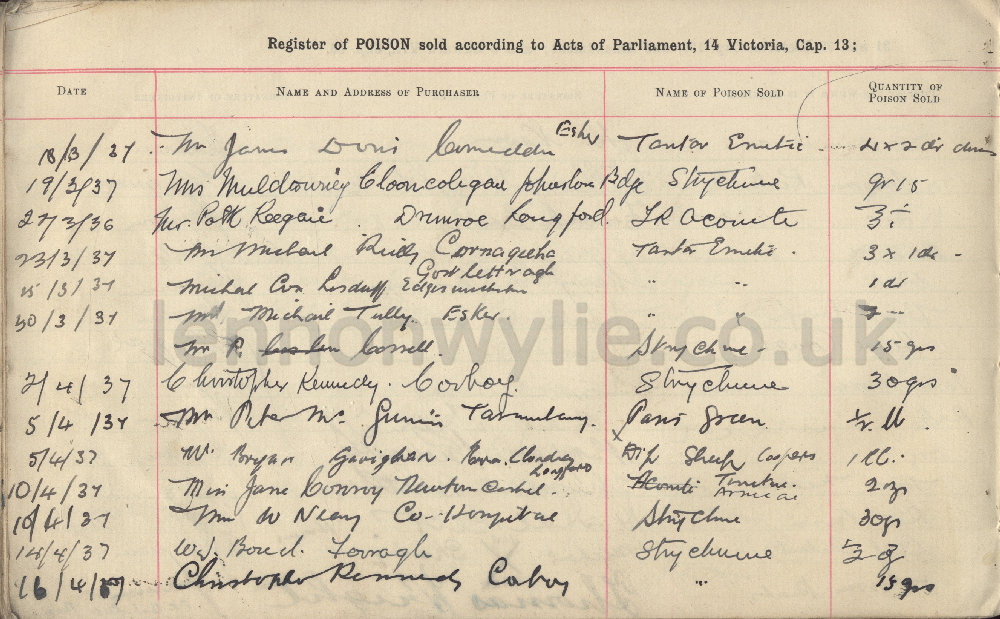 Register of POISON sold according to Acts of Parliament, 14 Victoria, Cap. 13;
DATE NAME AND ADDRESS OF PURCHASER NAME OF POISON SOLD QUANTITY OF POISON SOLD
Esker
18/3/37 Mr James Tartar Emetic 4 x 2 dr
19/3/37 Mrs Muldowney Clooncolligan Johnston Bdge Strychnine gr 15
27/3/36 Mr. Patk Keegan Drumroe Longford
23/3/37 Mr Michael Reilly Cornageeha Tartar Emetic. 3 x 1 dr -
Gort Lettragh
15/3/37 Michael Cox Lisduff Edgeworthstown " " 1 dr
30/3/37 Mr Michael Tully. Esker. " "
Mr P. Strychnine - 15 grs
2/4/37 Christopher Kennedy. Corboy. Strychnine 30 grs
5/4/37 Mr Peter Mc Paris Green ½ lb.
5/4/37 Mr Bryan Gavighan. Clondra Longford x Dip Sheep Coopers 1 lb.
10/4/37 Miss Jane Conroy Newtowncashel. Aconiti Tincture Arnicae 2 oz
10/4/37 W Neary Co-Hospital Strychnine 30 gr
14/4/37 W.J. Bond. Farragh Strychnine
16/4/37 Christopher Kennedy Corboy " 15 grs
lennonwylie.co.uk